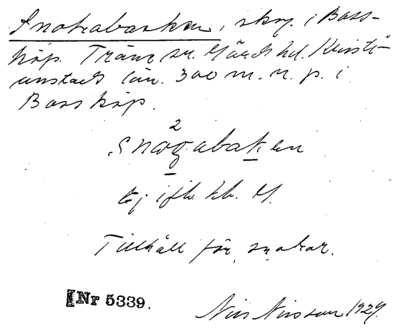 Snokabacken, skog i Boss-
köp. Tranås sn. Gärds hd. Kristi-
anstads län. 300 m. n. p. i
Bossköp.
2
snogabakan
Ej ifr. kb. M.
Tillhåll för snokar.
Nr 5339.
Nils Nilsson 1929.